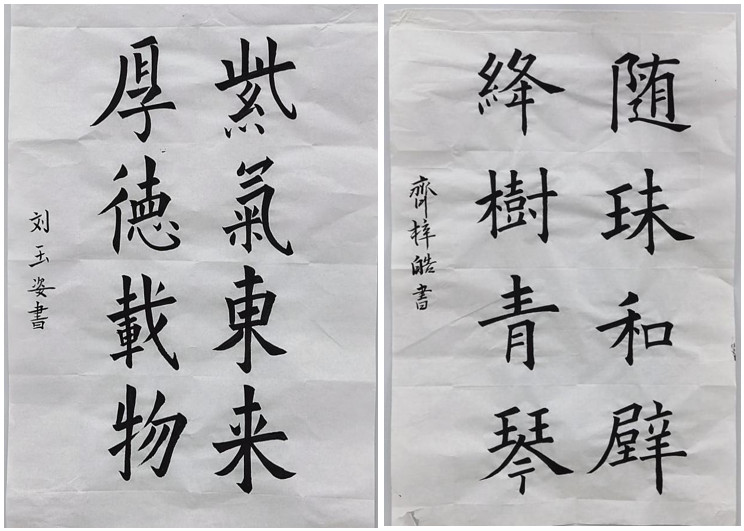 紫氣東来
厚德載物
刘玉姿書
随珠和璧
絳樹青琴
齊梓皓書